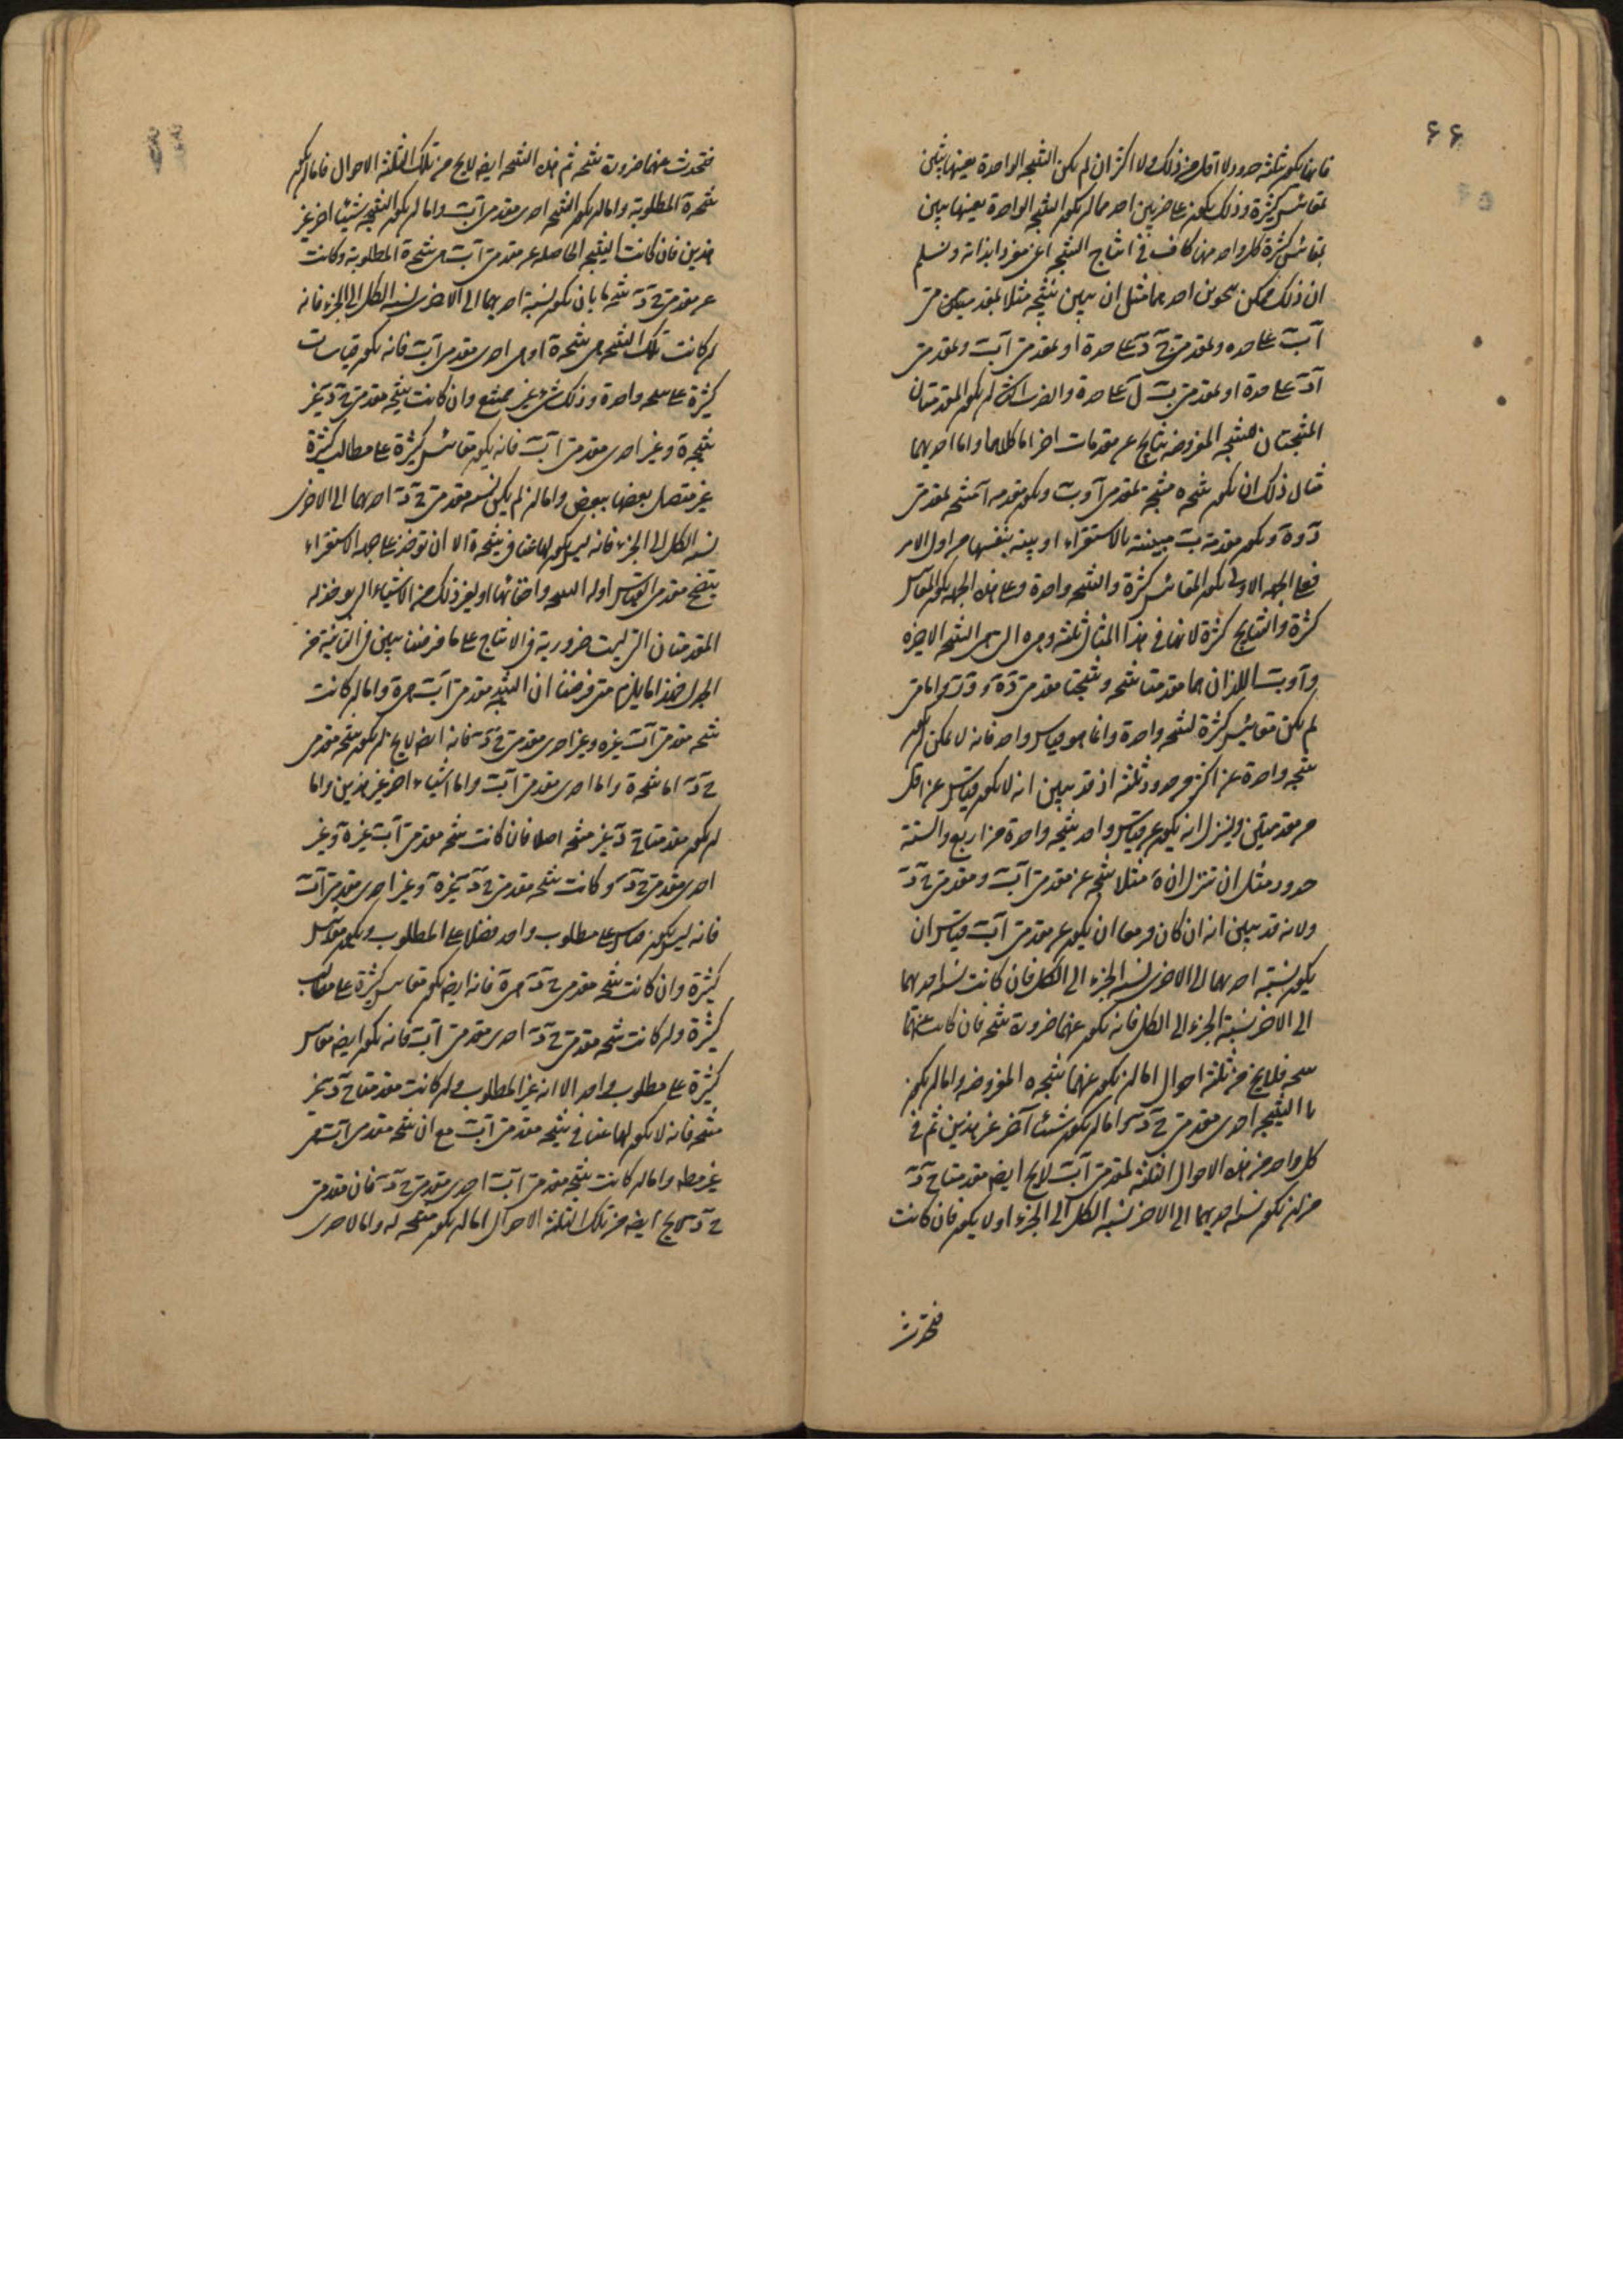 ٦٦
فانما يكون بثلثة حدود لا اقل من ذلك ولا اكثر ان لم يكن النتيجة الواحدة بعينها تبين
بمقائيس كثيرة وذلك يكون على ضربين احدهما ان يكون النتيجة الواحدة بعينها تبين
بمقائيس كثيرة كل واحد منها كاف في انتاج النتيجة اعنى مفردا بذاته ونسلم
ان ذلك ممكن بنحوين احدهما مثل ان تبين نتيجة مثلا بمقدمتين
آب على حده وبمقدمتى على حدة او بمقدمتى آب وبمقدمتى
على حدة او بمقدمتى على حدة والضرب الثانى ان يكون المقدمتان
المنتجتان للنتيجة المفروضة نتايج عن مقدمات اخر اما كلاهما واما احديهما
مثال ذلك ان يكون نتيجة منتجة بمقدمتى آ و ب ويكون مقدمة آ نتيجة لمقدمتى
د و ه ويكون مقدمة ب مبينة بالاستقراء او بينة بنفسها من اول الامر
فعلى الجهة الاولى يكون المقائيس كثيرة والنتيجة واحدة وعلى هذه الجهة يكون المقائيس
كثيرة والنتايج كثيرة لانها في هذا المثال ثلثة وهى التى هى النتيجة الاخيرة
و آ و ب اللذان هما مقدمتا نتيجة ونتيجتا مقدمتى واما متى
لم يكن مقائيس كثيرة لنتيجة واحدة وانما هو قياس واحد فانه لا يمكن ان يكون
نتيجة واحدة عن اكثر من حدود ثلثة اذ قد تبين انه لا يكون قياس عن اقل
من مقدمتين ولينزل انه يكون عن قياس واحد نتيجة واحدة من اربع والستة
حدود مثل ان ننزل ان ه مثلا نتيجة عن مقدمتى آب ومقدمتى ج د
ولانه قد تبين انه ان كان مزمعا ان يكون عن مقدمتى آب قياس ان
يكون نسبة احديهما الى الاخرى نسبة الجزء الى الكل فان كانت نسبة احديهما
الى الاخر نسبة الجزء الى الكل فانه يكون عنهما ضرورة نتيجة فان كانت عنهما
نتيجة فلا يخ من ثلثة احوال اما ان يكون عنهما نتيجة ه المفروضة واما ان يكون
النتيجة احدى مقدمتى ج د واما ان يكون شيئا آخر غير هذين ثم في
كل واحد من هذه الاحوال الثلثة لمقدمتى آب لا يخ ايضا مقدمتا ج د
من ان يكون نسبة احديهما الى الاخر نسبة الكل الى الجزء او لا يكون فان كانت
فتحدث
فتحدث عنهما ضرورة نتيجة ثم هذه النتيجة ايضا لا يخ من تلك الثلثة الاحوال فاما ان يكون
نتيجة ه المطلوبة واما ان يكون النتيجة احدى مقدمتى آب واما ان يكون النتيجة شيئا اخر غير
هذين فان كانت النتيجة الحاصلة عن مقدمتى آب هى نتيجة ه المطلوبة وكانت
عن مقدمتى ج د نتيجة ما بان يكون نسبة احديهما الى الاخرى نسبة الكل الى الجزء فانه
ان كانت تلك النتيجة هى نتيجة ه او هى احدى مقدمتى آب فانه يكون قياسات
كثيرة على نتيجة واحدة وذلك شىء غير ممتنع وان كانت نتيجة مقدمتى ج د غير
نتيجة ه وغير احدى مقدمتى آب فانه يكون مقائيس كثيرة على مطالب كثيرة
غير متصل بعضها ببعض واما ان لم يكن نسبة مقدمتى ج د احديهما الى الاخرى
نسبة الكل الى الجزء فانه ليس يكون لها غنا في نتيجة ه الا ان توخذ على جهة الاستقراء
يتضح مقدمتى القياس او له النتيجة واخفائها او لغير ذلك من الاشياء التى يوخذ له
المقدمتان التى ليست ضرورية في الانتاج على ما فرضنا تبين في الثانية من
الجدل فهذا ما يلزم متى فرضنا ان النتيجة مقدمتى آب هى ه واما ان كانت
نتيجة مقدمتى آب غير ه وغير احدى مقدمتى ج د فانه ايضا لا يخ ان يكون نتيجة مقدمتى
ج د اما نتيجة ه واما احدى مقدمتى آب واما اشياء اخر غير هذين واما
ان يكون مقدمتا ج د غير منتجة اصلا فان كانت نتيجة مقدمتى آب غير ه وغير
احدى مقدمتى ج د وكانت نتيجة مقدمتى ج د غير ه وغير احدى مقدمتى آب
فانه ليس يكون قياس على مطلوب واحد فضلا على المطلوب ويكون مقائيس
كثيرة وان كانت نتيجة مقدمتى ج د هى ه فانه ايضا يكون مقائيس كثيرة على مطالب
كثيرة وان كانت نتيجة مقدمتى ج د احدى مقدمتى آب فانه يكون ايضا مقائيس
كثيرة على مطلوب واحد الا انه غير المطلوب وان كانت مقدمتا ج د غير
منتجة فانه لا يكون لها غنا في نتيجة مقدمتى آب مع ان نتيجة مقدمتى آب هى
غير مطلوبة واما ان كانت نتيجة مقدمتى آب احدى مقدمتى ج د فان مقدمتى
ج د لا يخ ايضا من تلك الثلثة الاحوال اما ان يكون منتجة له واما لاحدى